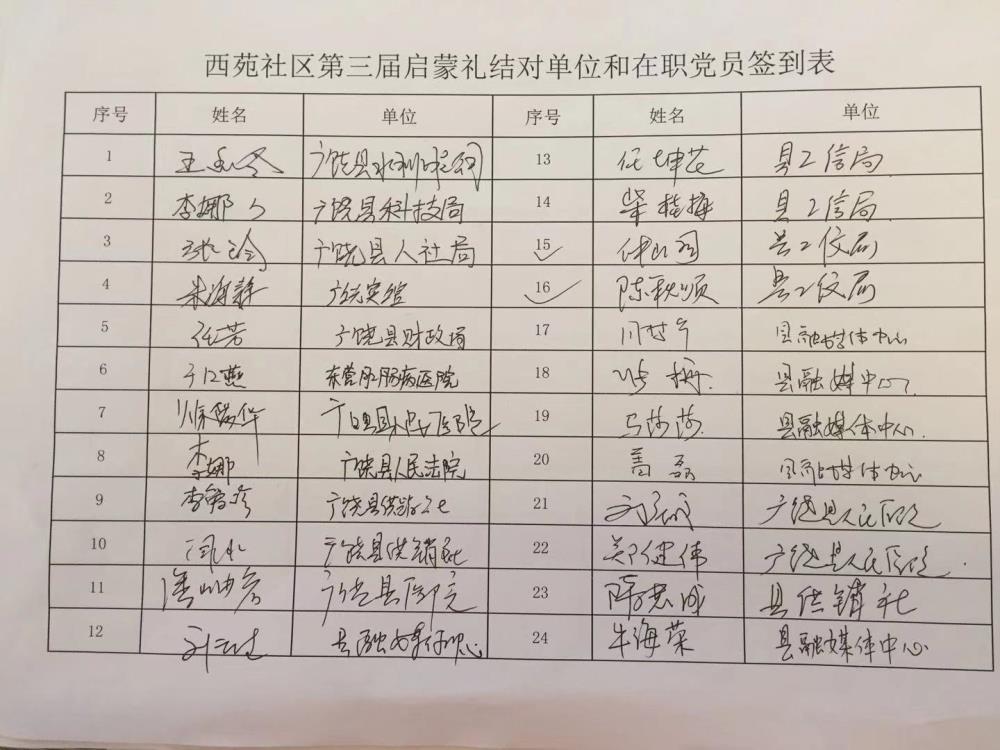 西苑社区第三届启蒙礼结对单位和在职党员签到表
序号 姓名 单位 序号 姓名 单位
1 广饶县水利 13 任坤花 县工信局
2 李娜 广饶县科技局 14 柴桂梅 县工信局
3 张冷 广饶县人社局 15 县工信局
4 朱海静 16 陈秋顺 县工信局
5 任芳 广饶县财政局 17 县融媒体中心
6 于江燕 东营肛肠病医院 18 张栅 县融媒中心
7 徐俊华 广饶县人民医院 19 马莎莎 县融媒体中心
8 李娜 广饶县人民法院 20 磊 县融媒体中心
9 李 广饶县供销社 21 刘 广饶县人民医院
10 广饶县供销社 22 郑健伟 广饶县人民医院
11 广饶县医院 23 陈志成 县供销社
12 刘 县融媒体中心 24 牛海荣 县融媒体中心